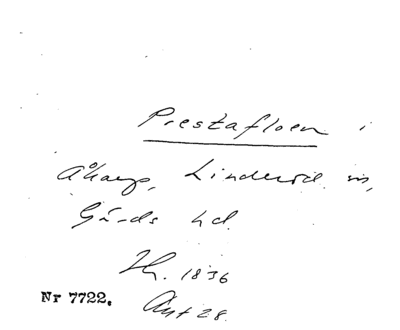 Prestafloen i
Åkarp, Linderöd sn,
Gärds hd.
Th. 1836
Nr 7722. Ant 28.